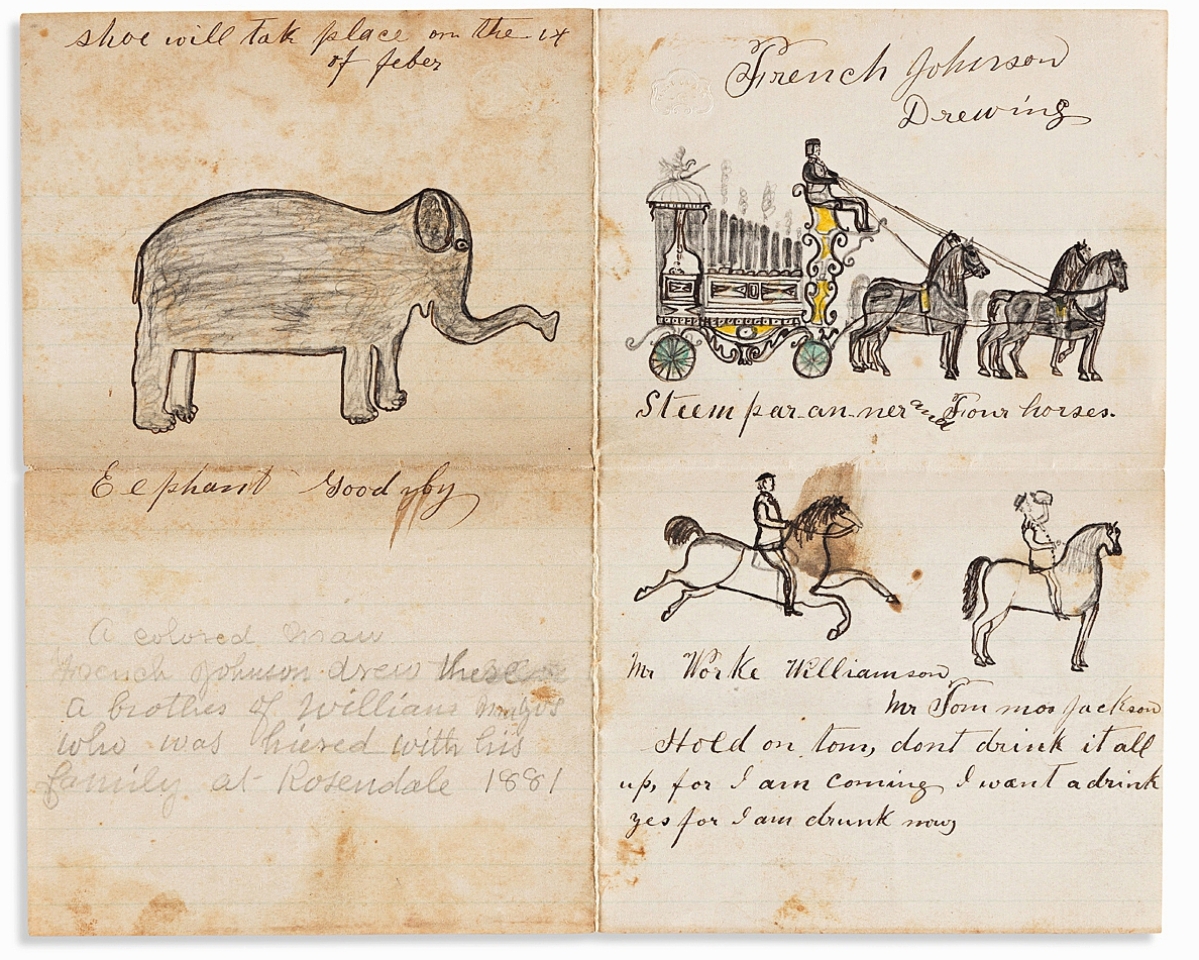 shoe will tak place on the 14
of feber
Eelphant Good yby
A colored man
French Johnson drew these
a brother of Willians
who was hiered with his
family at Rosendale 1881
French Johnson
Drewing
Steem par-an-ner and Four horses.
Mr Worke Williamson
Mr Tom mos Jackson
Hold on tom, dont drink it all
up, for I am coming I want a drink
yes for I am drunk now